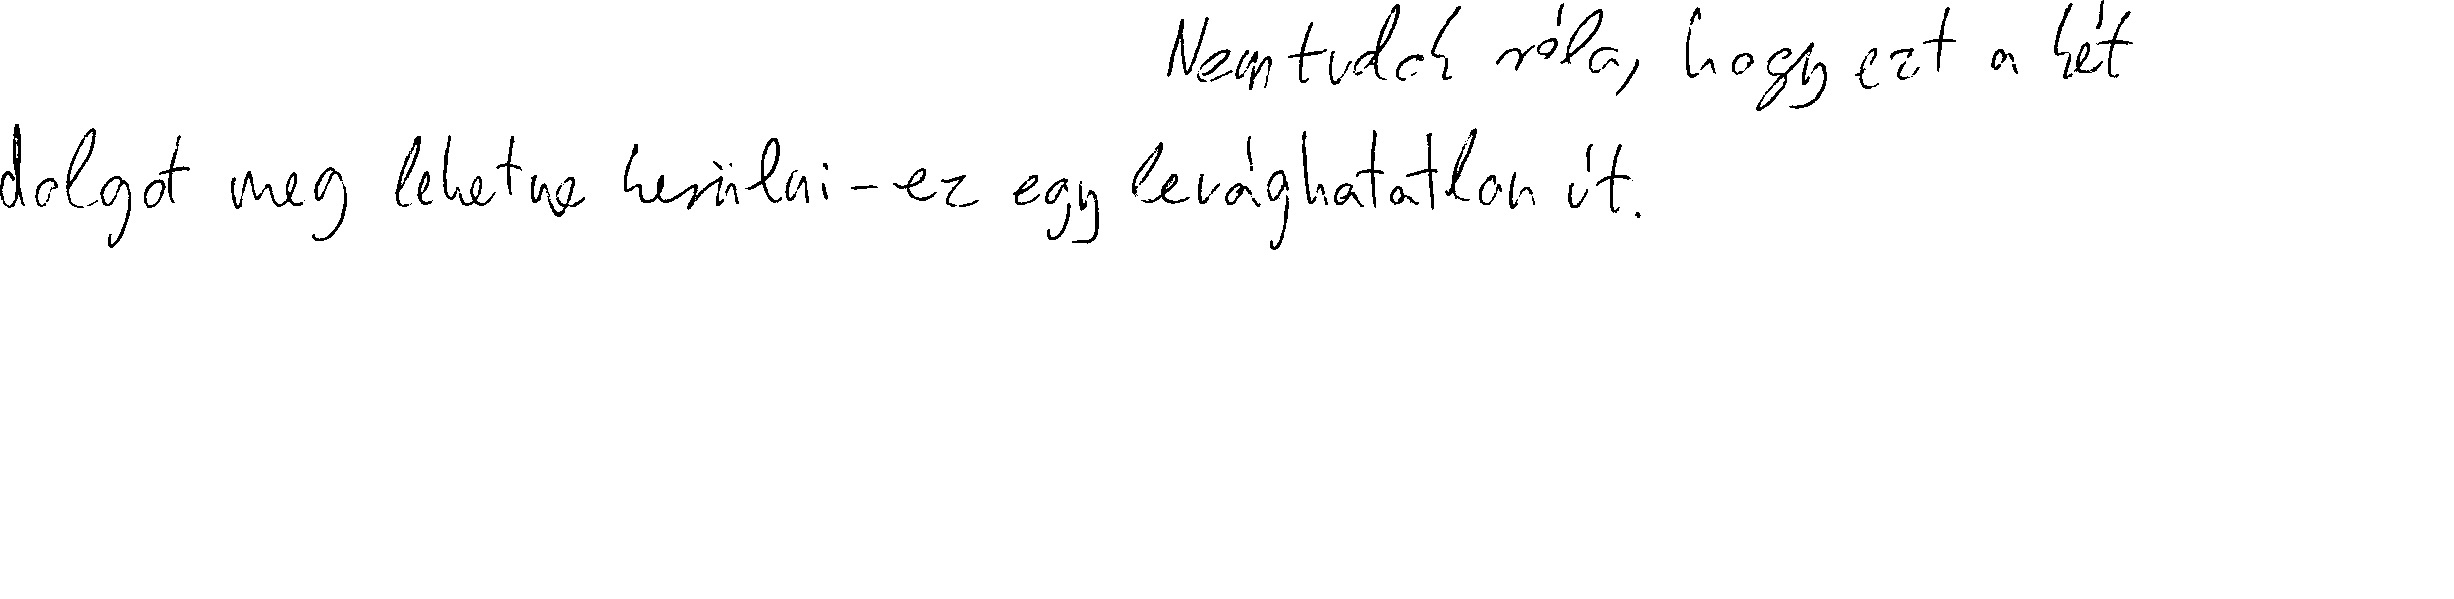 Nem tudok róla, hogy ezt a két
dolgot meg lehetne kerülni - ez egy levághatatlan út.